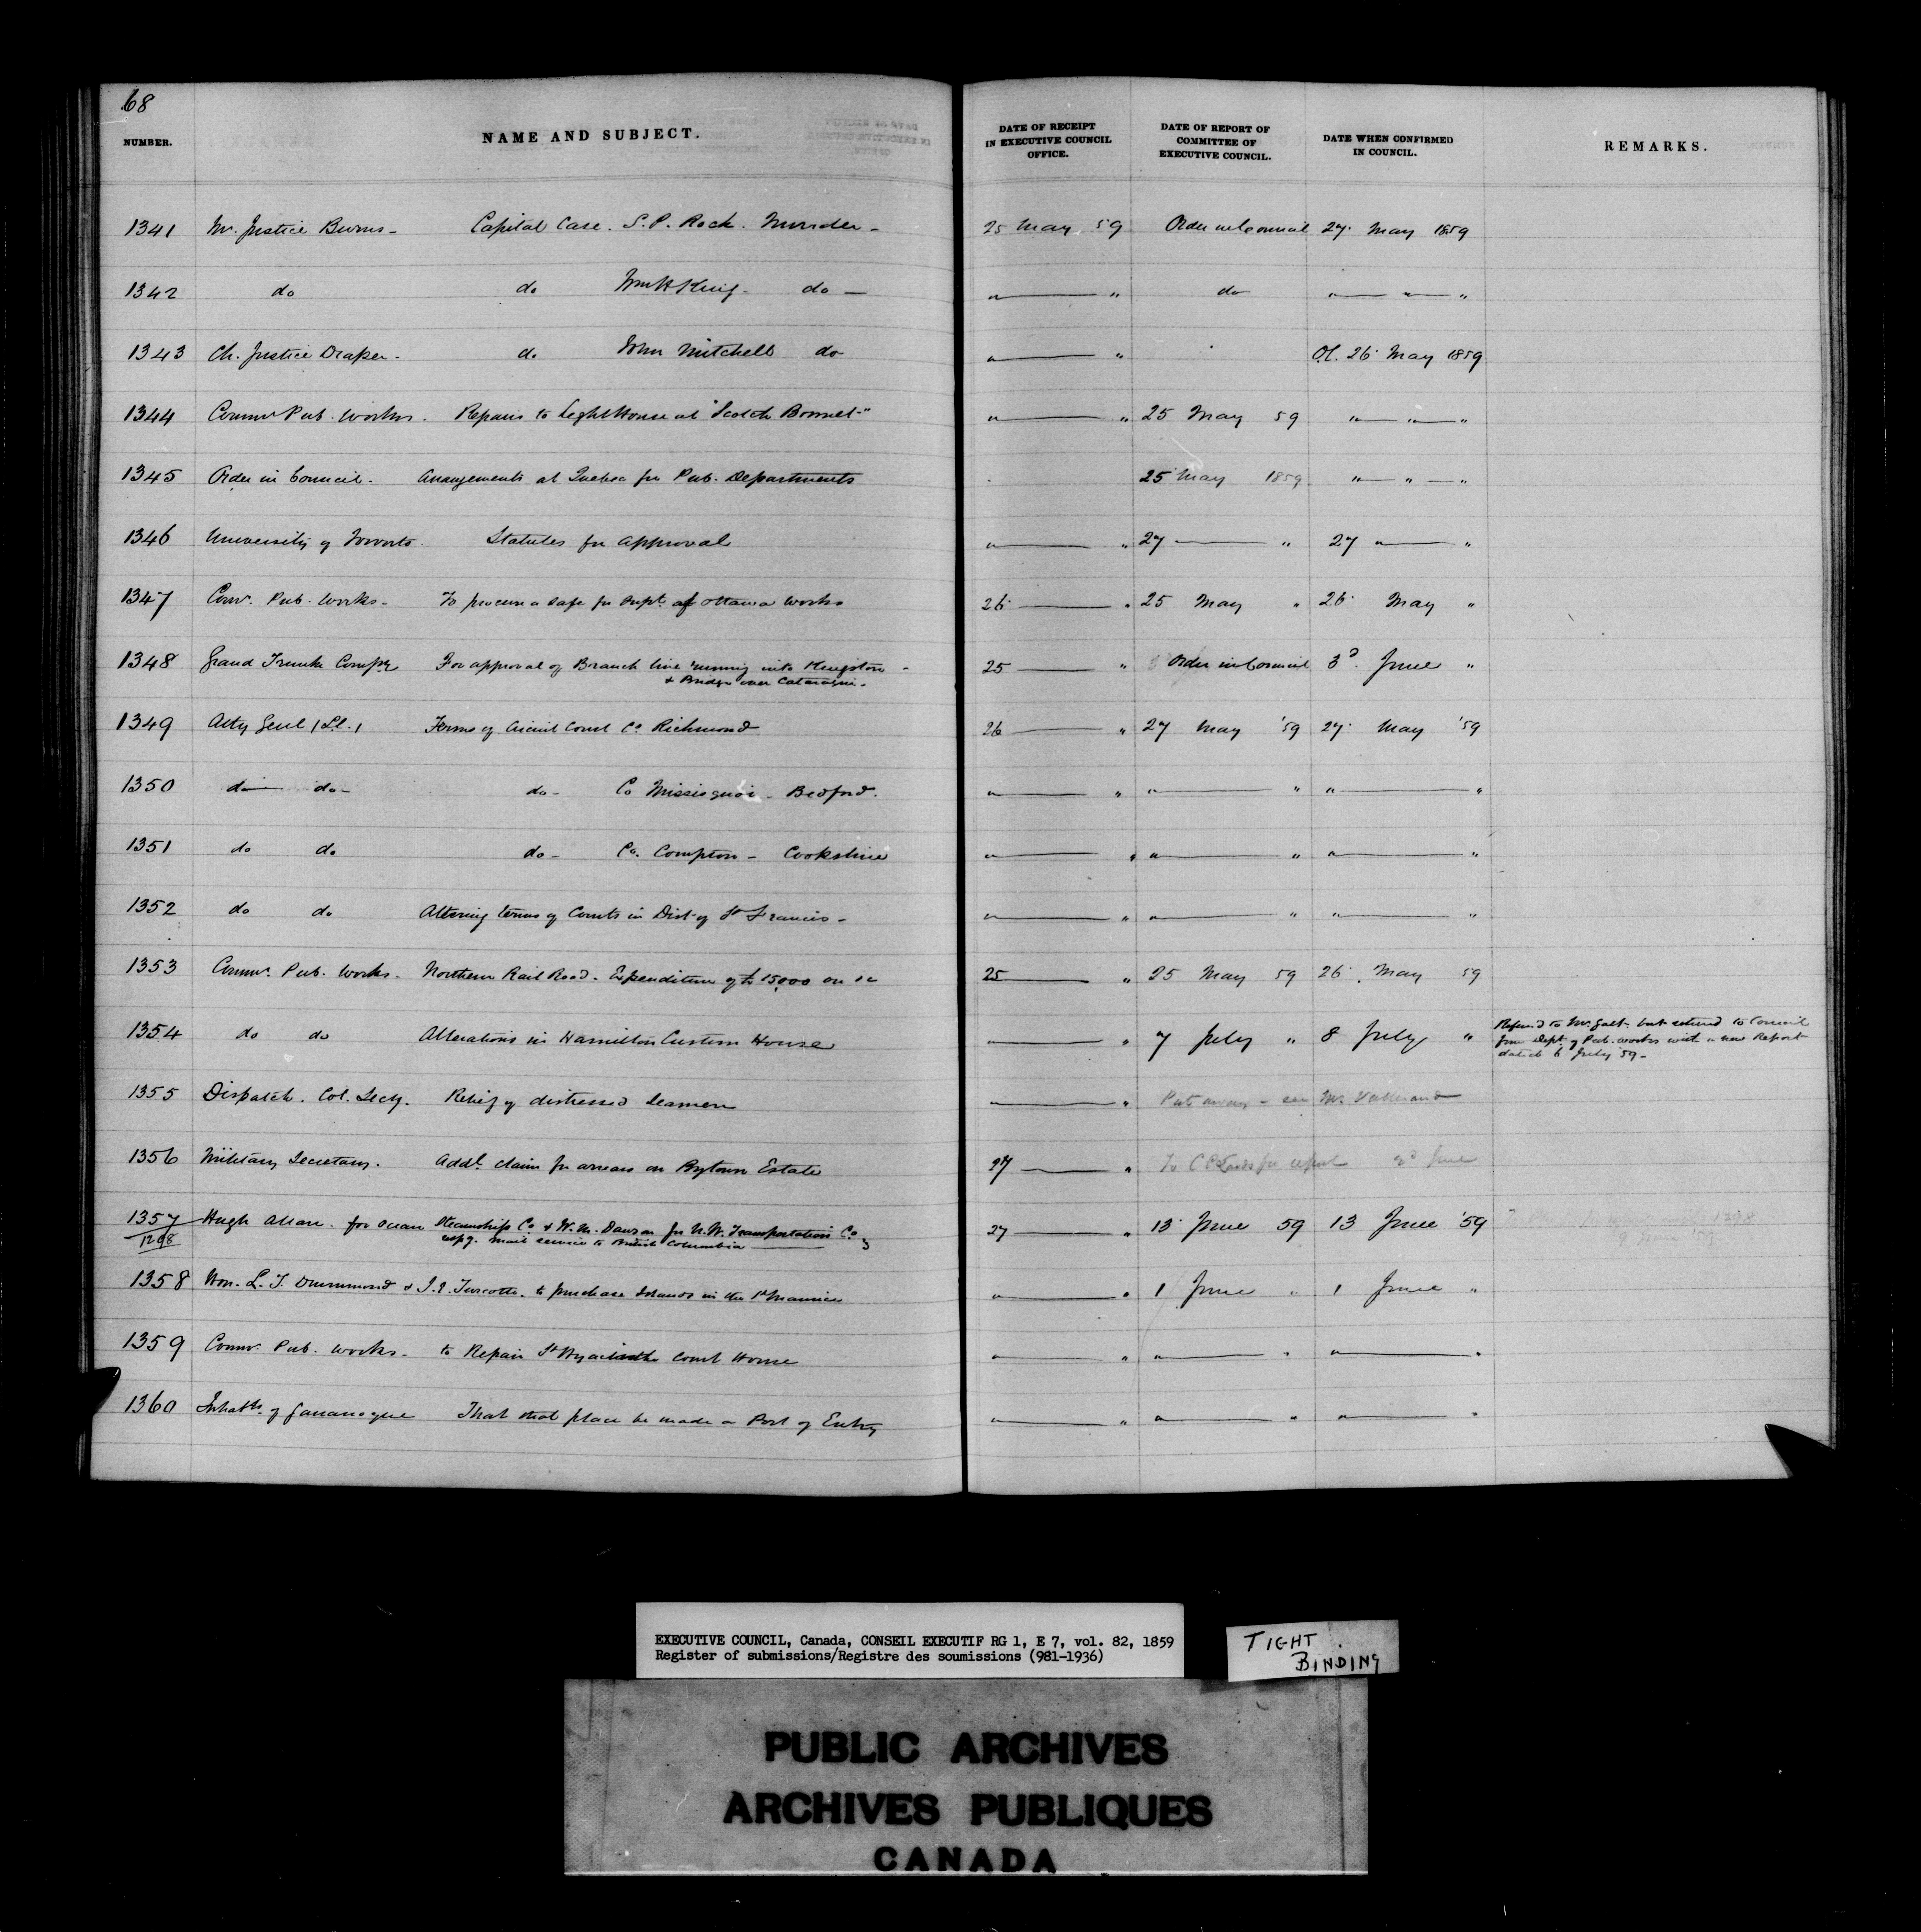 68
NUMBER. NAME AND SUBJECT. DATE OF RECEIPT IN EXECUTIVE COUNCIL OFFICE. DATE OF REPORT OF COMMITTEE OF EXECUTIVE COUNCIL. DATE WHEN CONFIRMED IN COUNCIL. REMARKS.
1341 Mr. Justice Burns - Capital Case. S. P. Rock. Murder - 25 May 59 Order in Council 27 May 1859
1342 do do Wm H King - do — " — " do " — " — "
1343 Ch. Justice Draper - do John Mitchell do " — " O.C. 26 May 1859
1344 Commr Pub. Works. Repairs to Light House at "Scotch Bonnet" " — " 25 May 59 " — " — "
1345 Order in Council. Arrangements at Quebec for Pub. Departments 25 May 1859 " — " — "
1346 University of Toronto. Statutes for Approval " — " 27 — " 27 " — "
1347 Comr. Pub. Works - To procure a safe for Supt. of Ottawa Works 26 — " 25 May " 26 May "
1348 Grand Trunk Compy For approval of Branch line running into Kingston - 25 — " Order in Council 3d June "
& Bridge over Cataraqui -
1349 Atty Genl (L.C.) Terms of Circuit Court Co Richmond 26 — " 27 May '59 27 May '59
1350 do do - do - Co Missisquoi - Bedford. " — " " — " " — "
1351 do do do - Co. Compton - Cookshire " — " " — " " — "
1352 do do Altering terms of Courts in Dist. of St Francis - " — " " — " " — "
1353 Commr. Pub. Works - Northern Rail Road. Expenditure of £15,000 on do 25 — " 25 May 59 26 May 59
1354 do do Alterations in Hamilton Custom House " — " 7 July " 8 July " Referred to Mr. Galt - but returned to Council
from Dept. of Pub. Works with a new Report
dated 6 July '59 -
1355 Dispatch. Col. Secy. Relief of distressed Seamen " — " Put away - see Mr.
1356 Military Secretary. Addl. claim for arrears on Bytown Estate 27 — " To C C Lands for report June
1357 Hugh Allan. for Ocean Steamship Co & W. M. Dawson for N. W. Transportation Co 27 — " 13 June 59 13 June '59
1298 respg. mail service to British Columbia
1358 Hon. L. T. Drummond & J. E. Turcotte. to purchase Islands in the St Maurice " — " 1 June " 1 June "
1359 Commr. Pub. Works - to Repair St Hyacinthe Court House " — " " — " " — "
1360 Inhabts. of Gananoque That that place be made a Port of Entry " — " " — " " — "
EXECUTIVE COUNCIL, Canada, CONSEIL EXECUTIF RG 1, E 7, vol. 82, 1859
Register of submissions/Registre des soumissions (981-1936)
TIGHT
BINDING
PUBLIC ARCHIVES
ARCHIVES PUBLIQUES
CANADA